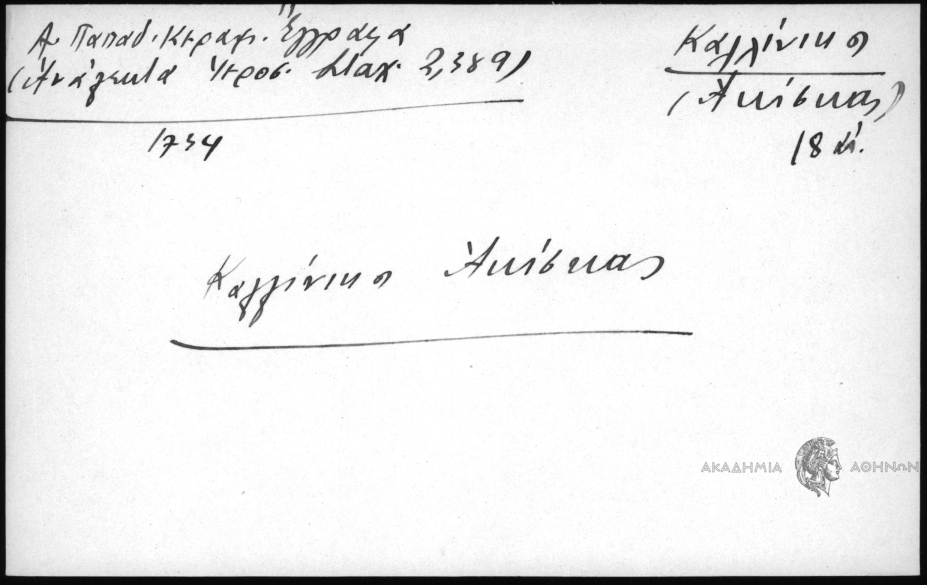 Α. Παπαδ. Κεραμ. Ἔγγραφα
(Ἀνάλεκτα Ἱεροσ. Σταχ. 2,389)
1734
Καλλίνικος
(Ἀκίσκας)
18 αἰ.
Καλλίνικος Ἀκίσκας
ΑΚΑΔΗΜΙΑ ΑΘΗΝΩΝ